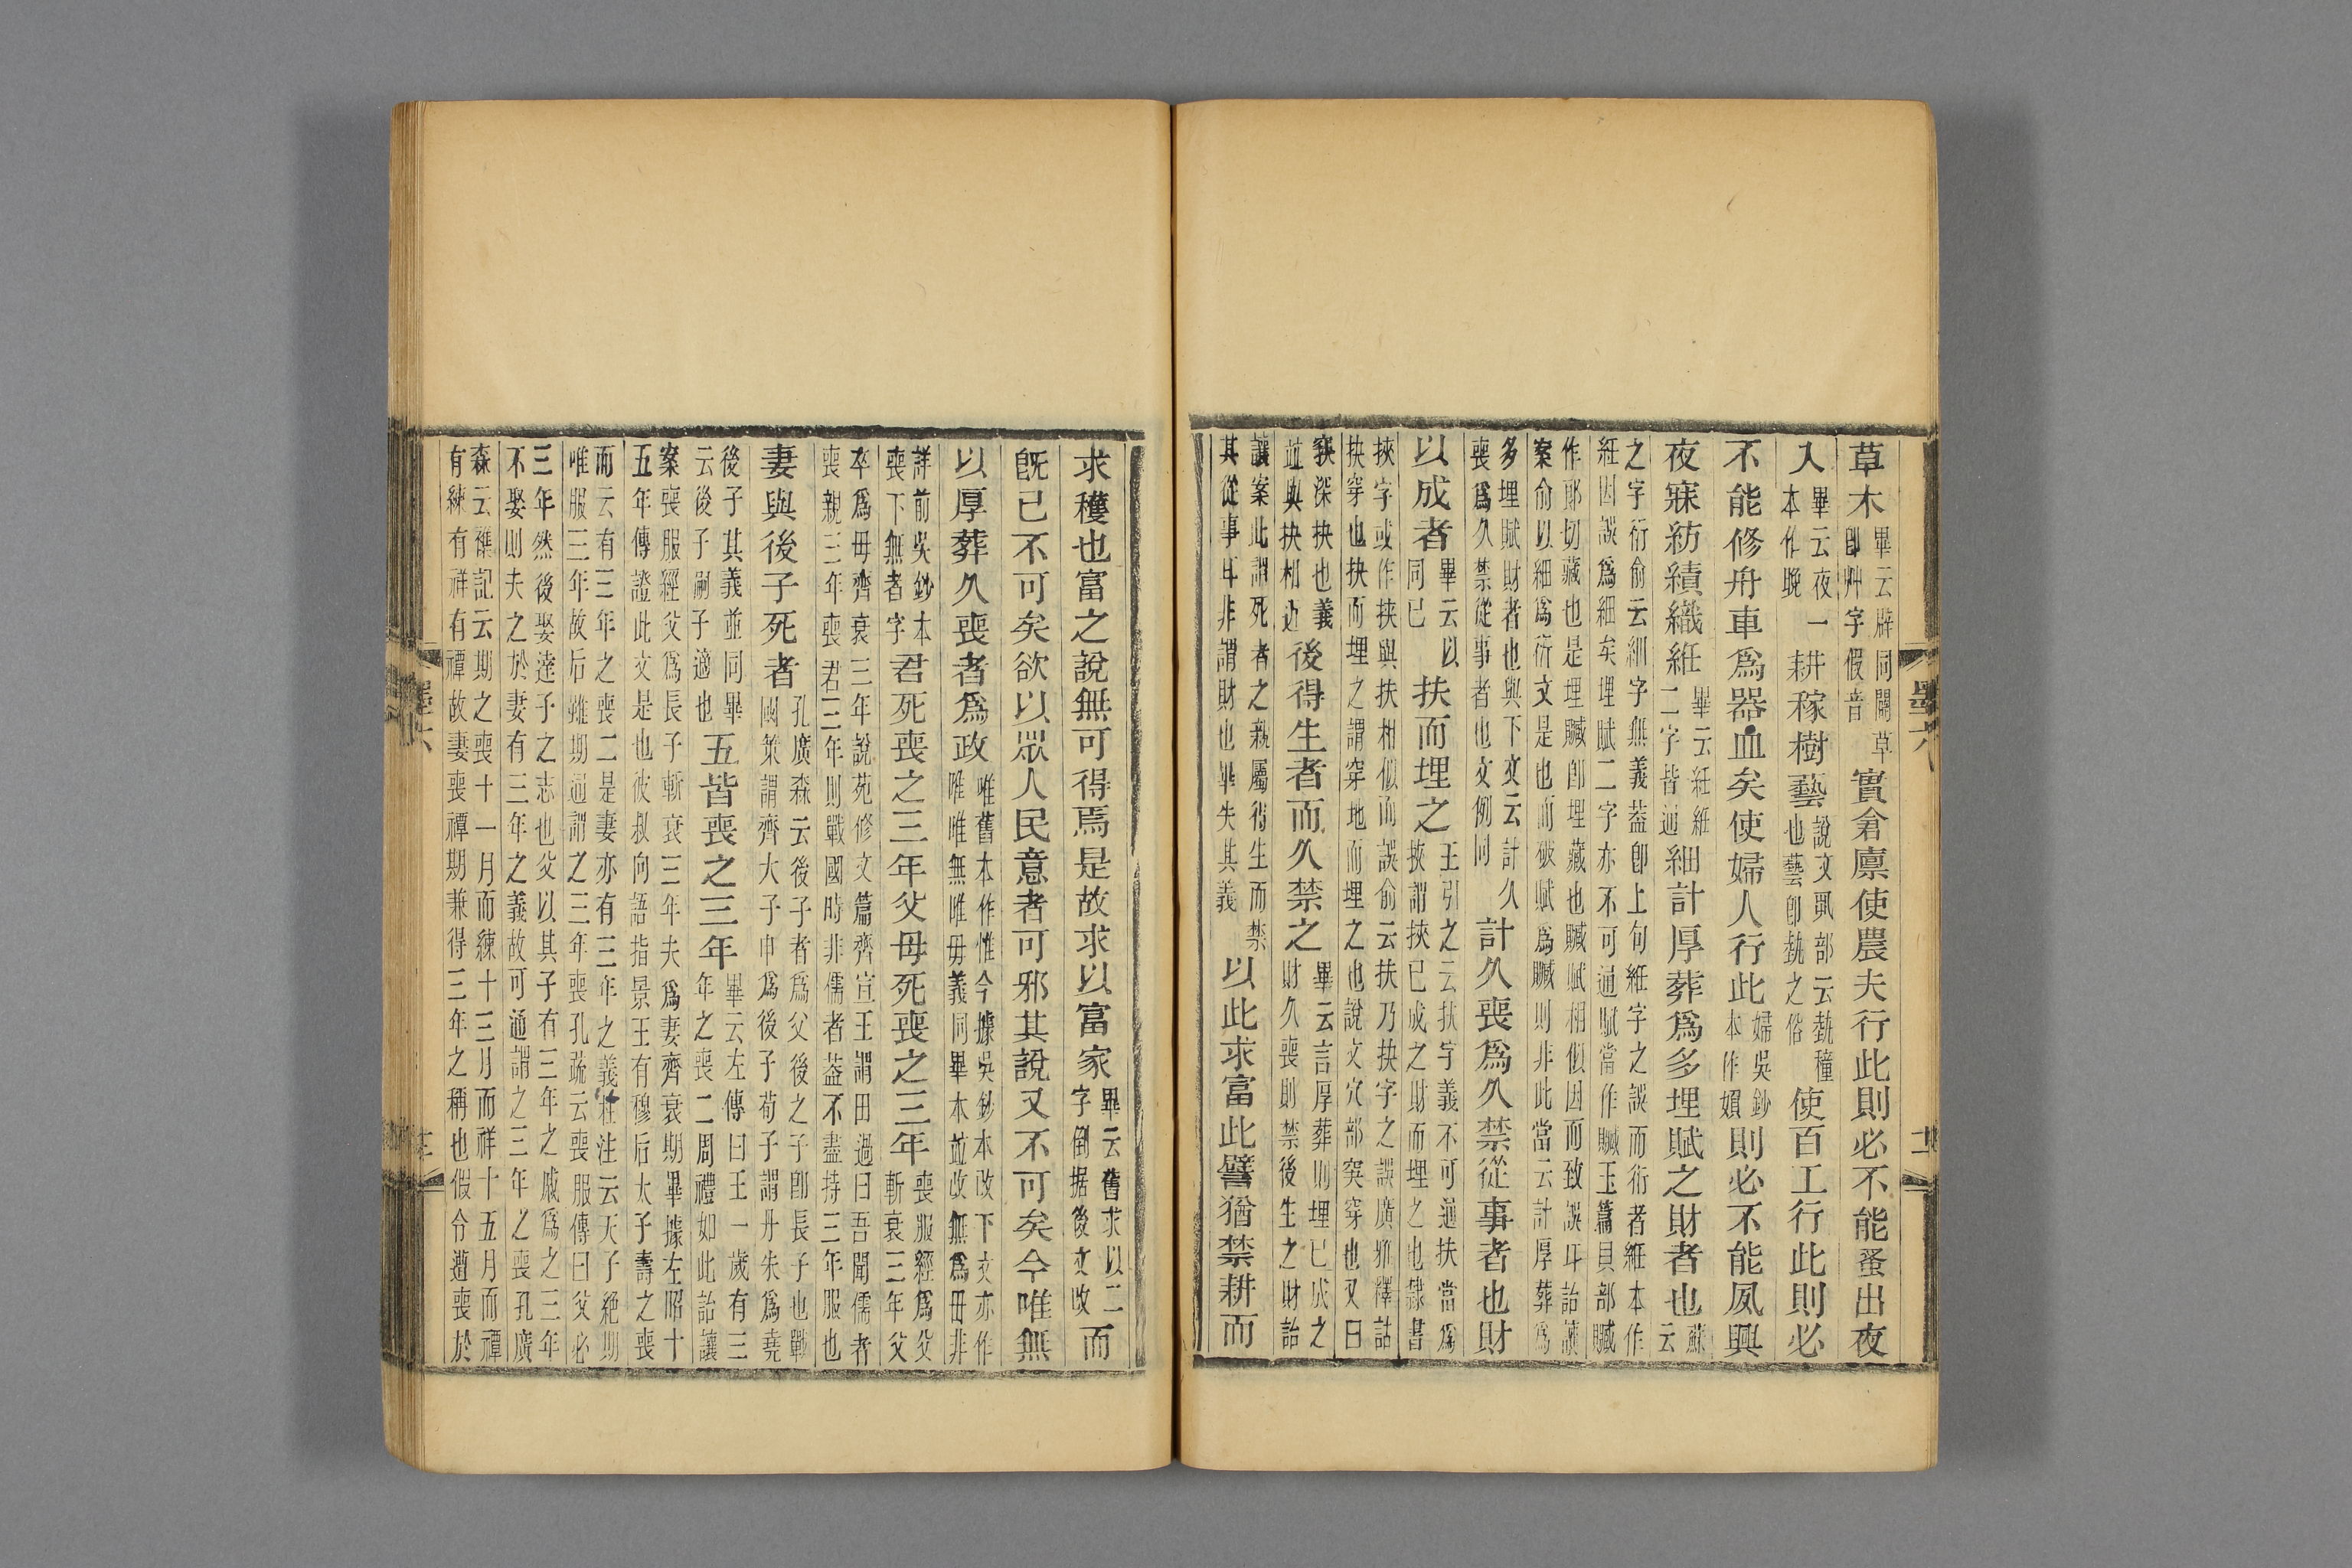 草木畢云辟同闢草卽艸字假音實倉廩使農夫行此則必不能蚤出夜
入畢云夜一本作晚耕稼樹藝說文丮部云埶穜也藝卽埶之俗使百工行此則必
不能修舟車爲器皿矣使婦人行此婦吳鈔本作媍則必不能夙興
夜寐紡績織紝畢云紝絍二字皆通細計厚葬爲多埋賦之財者也蘇云
之字衍俞云細字無義葢卽上句紝字之誤而衍者紝本作紝因誤爲細矣埋賦二字亦不可通賦當作贓玉篇貝部贓
作郞切藏也是埋贓卽埋藏也贓賦相似因而致誤耳詒讓案俞以細爲衍文是也而破賦爲贓則非此當云計厚葬爲
多埋賦財者也與下文云計久喪爲久禁從事者也文例同計久喪爲久禁從事者也財
以成者畢云以同已扶而埋之王引之云扶字義不可通扶當爲挾謂挾已成之財而埋之也隸書
挾字或作挾與扶相似而誤俞云扶乃抉字之誤廣雅釋詁抉穿也抉而埋之謂穿地而埋之也說文穴部突穿也又曰
𥥛深抉也義竝與抉相近後得生者而久禁之畢云言厚葬則埋已成之財久喪則禁後生之財詒
讓案此謂死者之親屬得生而禁其從事耳非謂財也畢失其義以此求富此譬猶禁耕而
求穫也富之說無可得焉是故求以富家畢云舊求以二字倒据後文改而
旣已不可矣欲以眾人民意者可邪其說又不可矣今唯無
以厚葬久喪者爲政唯舊本作惟今據吳鈔本改下文亦作唯唯無唯毋義同畢本竝改無爲毋非
詳前吳鈔本喪下無者字君死喪之三年父母死喪之三年喪服經爲父斬衰三年父
卒爲母齊衰三年說苑修文篇齊宣王謂田過曰吾聞儒者喪親三年喪君三年則戰國時非儒者葢不盡持三年服也
妻與後子死者孔廣森云後子者爲父後之子卽長子也戰國策謂齊大子申爲後子荀子謂丹朱爲堯
後子其義並同畢云後子嗣子適也五皆喪之三年畢云左傳曰王一歲有三年之喪二周禮如此詒讓
案喪服經父爲長子斬衰三年夫爲妻齊衰期畢據左昭十五年傳證此文是也彼叔向語指景王有穆后太子壽之喪
而云有三年之喪二是妻亦有三年之義杜注云天子絶期唯服三年故后雖期通謂之三年喪孔疏云喪服傳曰父必
三年然後娶達子之志也父以其子有三年之戚爲之三年不娶則夫之於妻有三年之義故可通謂之三年之喪孔廣
森云襍記云期之喪十一月而練十三月而祥十五月而禫有練有祥有禫故妻喪禫期兼得三年之稱也假令遭喪於